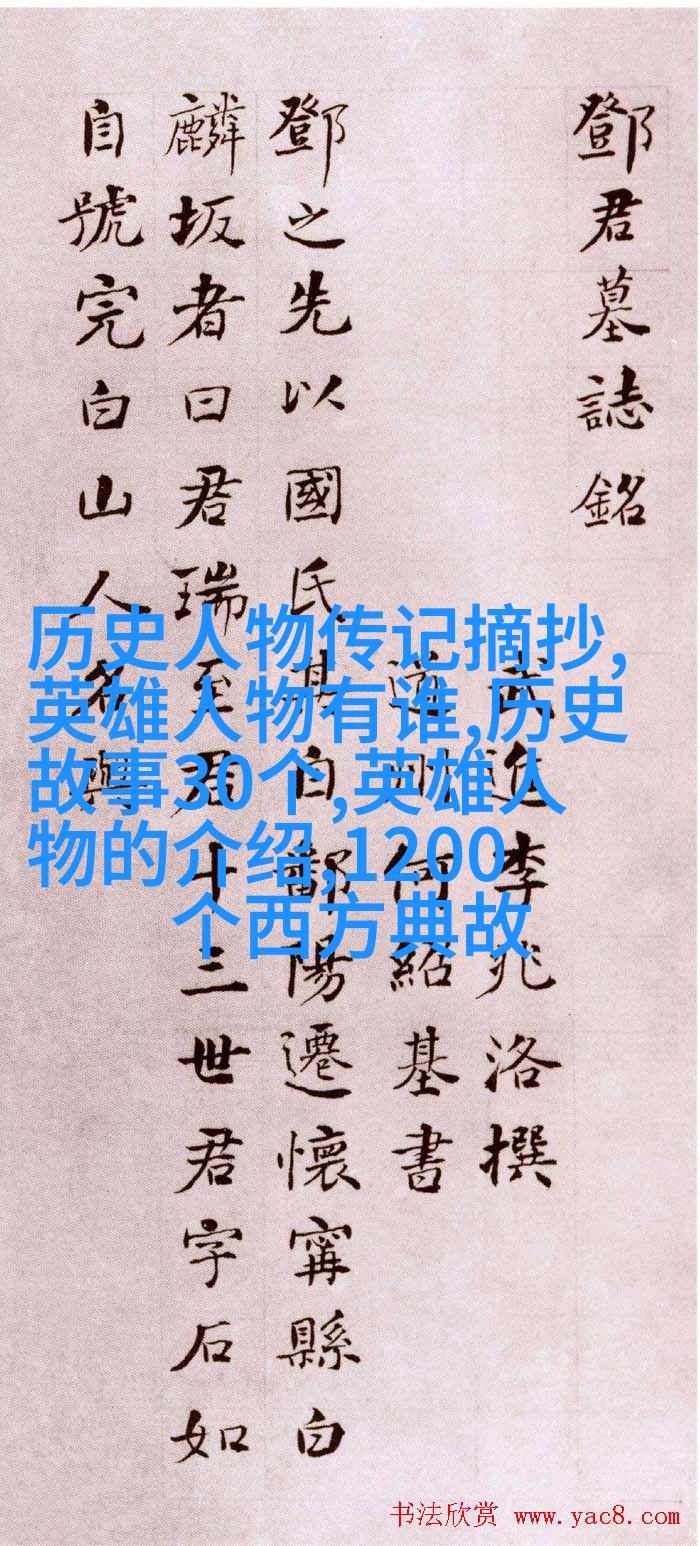 鄧君墓誌銘
武進李兆洛撰
道州何紹基書
鄧之先以國氏其自鄱陽遷懷甯縣白
麟坂者曰君瑞至君十三世君字石如
自號完白山人名與
历史人物传记摘抄,
英雄人物有谁,历史
故事30个,英雄人
物的介绍,1200
个西方典故
书法欣赏 www.yac8.com